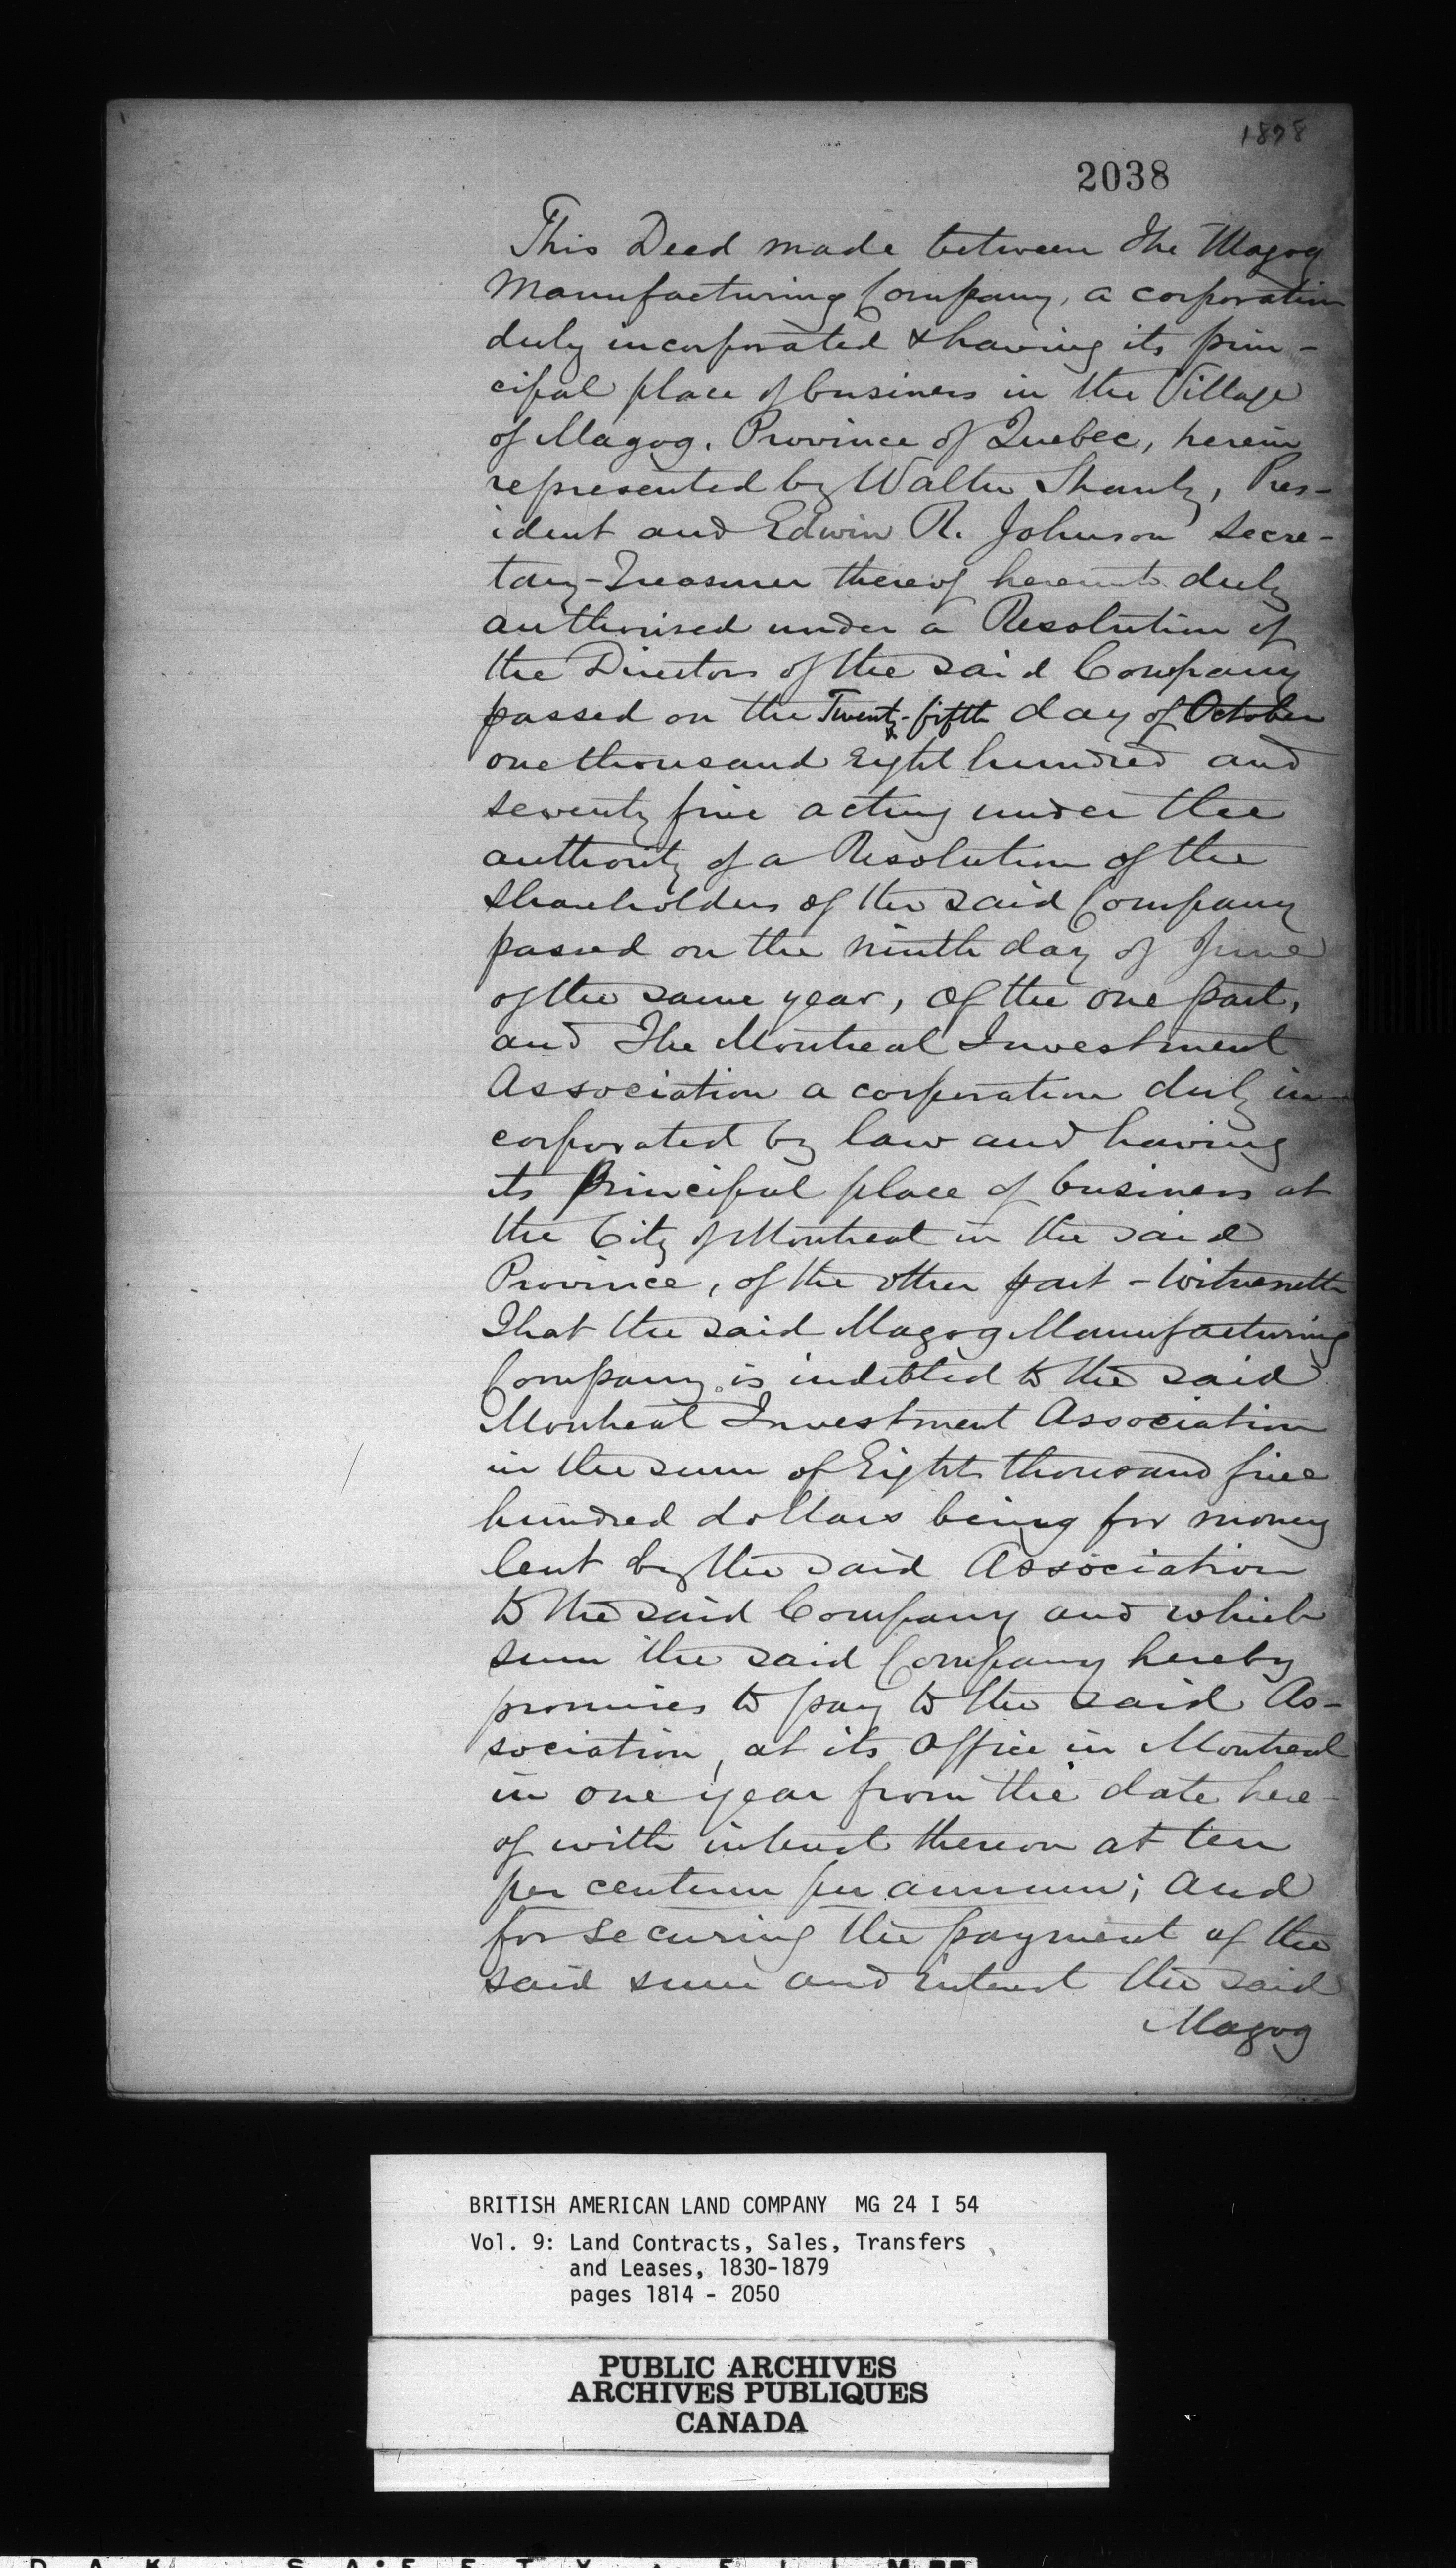 1878
2038
This Deed made between The Magog
Manufacturing Company, a corporation
duly incorporated & having its prin-
cipal place of business in the Village
of Magog, Province of Quebec, herein
represented by Walter Shanly, Pres-
ident and Edwin R. Johnson Secre-
tary-Treasurer thereof hereunto duly
authorised under a Resolution of
the Directors of the said Company
passed on the Twenty-fifth day of October
one thousand eight hundred and
seventy five acting under the
authority of a Resolution of the
shareholders of the said Company
passed on the ninth day of June
of the same year, of the one part,
and The Montreal Investment
Association a corporation duly in
corporated by law and having
its principal place of business at
the City of Montreal in the said
Province, of the other part - Witnesseth
That the said Magog Manufacturing
Company is indebted to the said
Montreal Investment Association
in the sum of Eight thousand five
hundred dollars being for money
lent by the said Association
to the said Company and which
sum the said Company hereby
promises to pay to the said As-
sociation, at its Office in Montreal
in one year from the date here-
of with interest thereon at ten
per centum per annum; And
for securing the payment of the
said sum and interest the said
Magog
BRITISH AMERICAN LAND COMPANY MG 24 I 54
Vol. 9: Land Contracts, Sales, Transfers
and Leases, 1830-1879
pages 1814 - 2050
PUBLIC ARCHIVES
ARCHIVES PUBLIQUES
CANADA